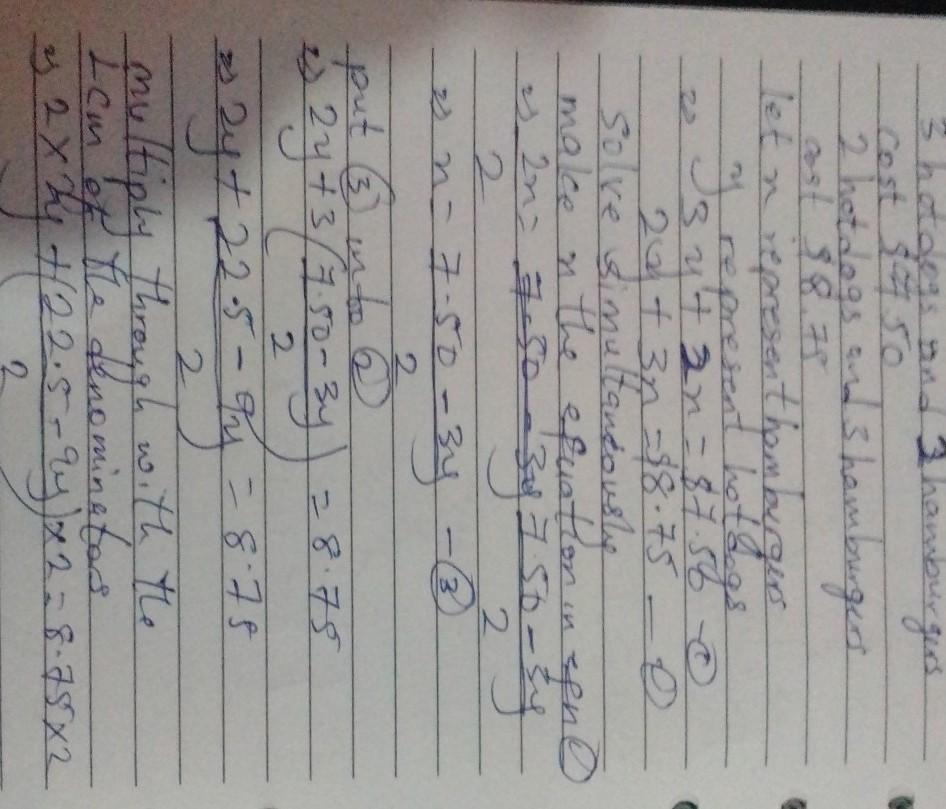 3 hotdogs and 2 hamburgers
cost $7.50
2 hotdogs and 3 hamburgers
cost $8.75
let x represent hamburgers
y represent hotdogs
⇒ 3y + 2x = $7.50 - ①
2y + 3x = $8.75 - ②
Solve simultaneously
make x the equation in eqn ①
⇒ 2x = 7.50 - 3y
2 2
⇒ x = 7.50 - 3y - ③
2
put ③ into ②
⇒ 2y + 3(7.50 - 3y) = 8.75
2
⇒ 2y + 22.5 - 9y = 8.75
2
multiply through with the
Lcm of the denominators
⇒ 2 x 2y + (22.5 - 9y) x 2 = 8.75 x 2
2